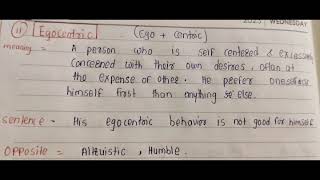 2025 WEDNESDAY
11 Egocentric (Ego + centric)
meaning = A person who is self centered & excessively
concerned with their own desires, often at
the expense of other. He prefer oneself
himself first than anything else.
Sentence - His egocentric behavior is not good for himself
Opposite = Altruistic, Humble.